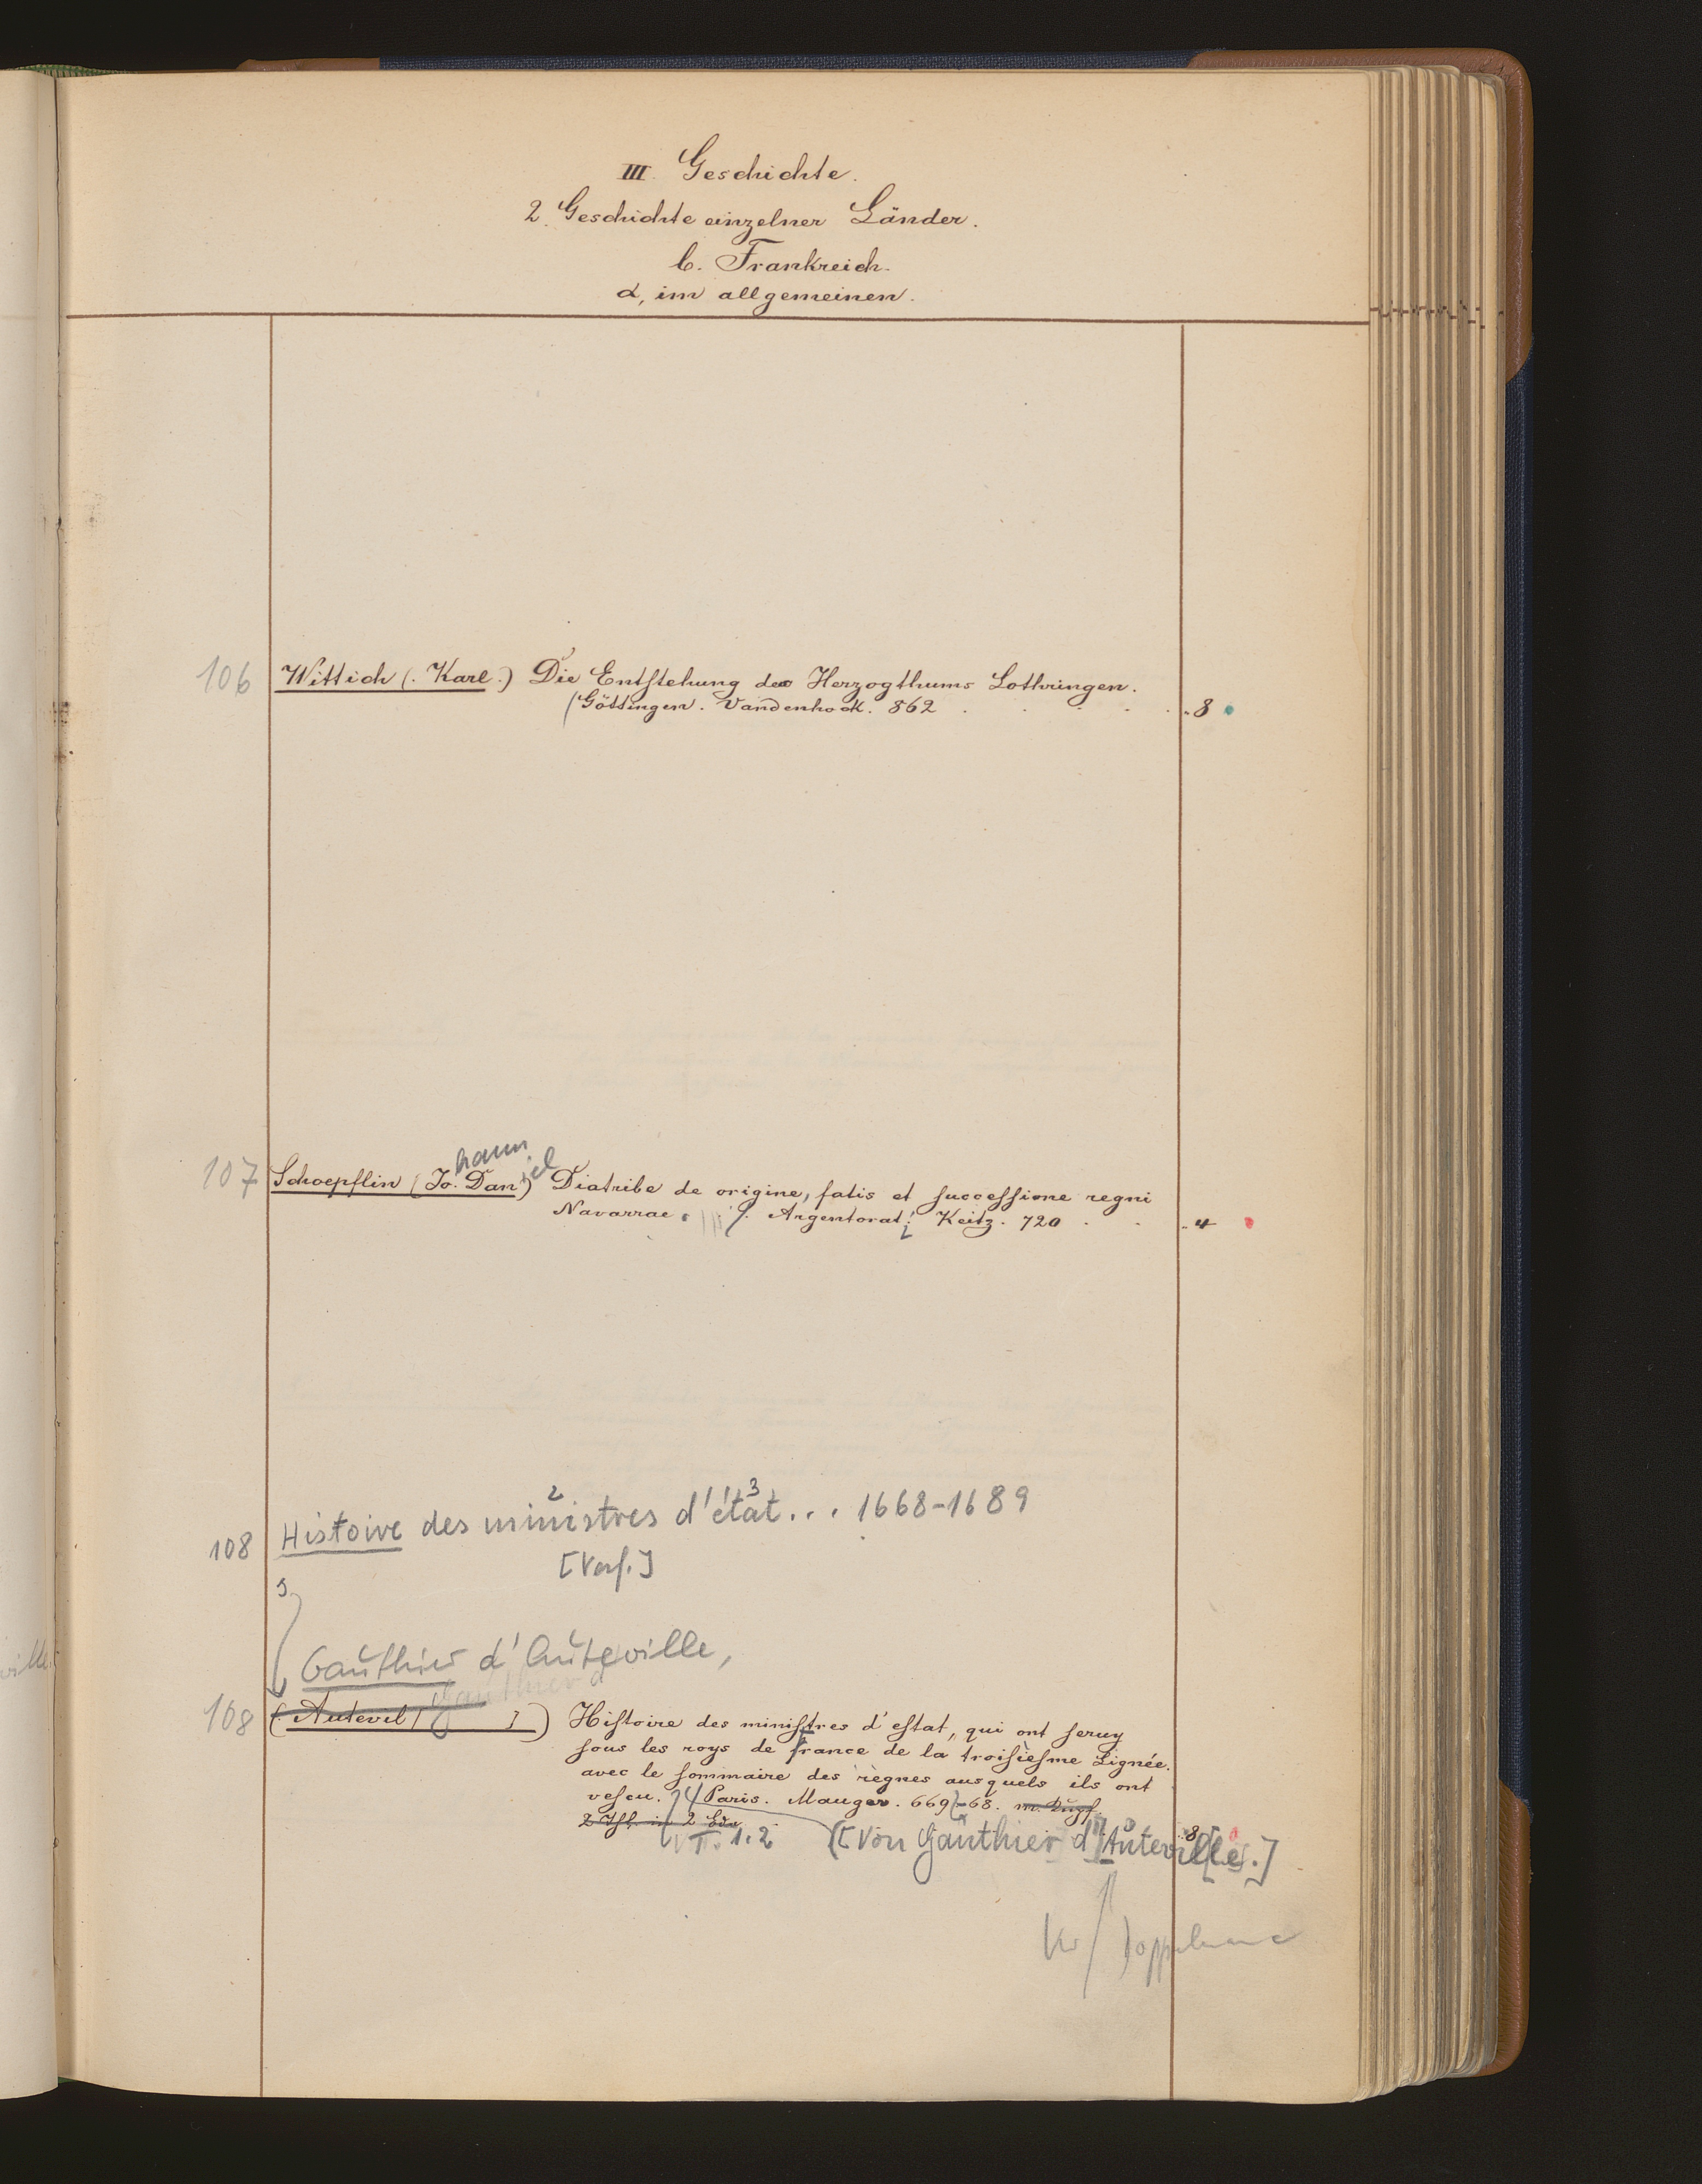 III. Geschichte.
2. Geschichte einzelner Länder.
b. Frankreich.
α, im allgemeinen.
106 Wittich (. Karl.) Die Entstehung des Herzogthums Lothringen.
(Göttingen. Vandenhoek. 862 . . . . . 8
hann iel
107 Schoepflin (Jo. Dan.) Diatribe de origine, fatis et successione regni
Navarrae. Argentorat. Keitz. 720 . . . 4
2 3
108 Histoire des ministres d'état... 1668-1689
[Verf.]
Gauthier d'Auteville,
Gauthier d
108 (. Autevil [ ] ) Histoire des ministres d'estat, qui ont seruy
sous les roys de france de la troisièsme Lignée.
avec le sommaire des règnes ausquels ils ont
vescu. Paris. Mauger. 669-68. m. Kupf.
2 Thl. in 2 Bdn . 8
T. 1.2 ([Von Gauthier d'Auteville[s].]
ville